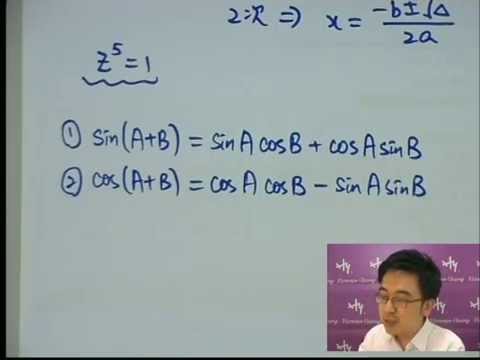 2次 ⇒ x = (-b±√Δ)/2a
z⁵ = 1
① sin(A+B) = sinA cosB + cosA sinB
② cos(A+B) = cosA cosB − sinA sinB